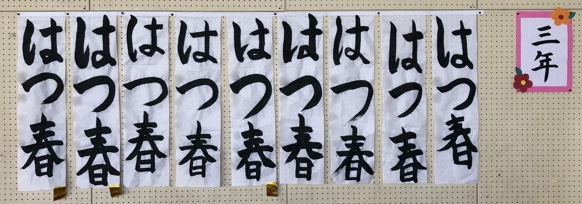 三年
はつ春
はつ春
はつ春
はつ春
はつ春
はつ春
はつ春
はつ春
はつ春